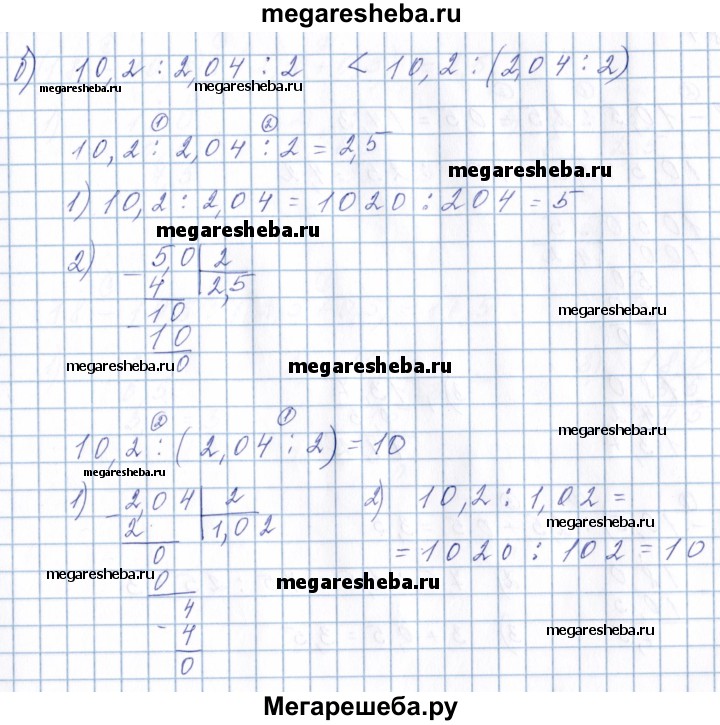 megaresheba.ru
б) 10,2 : 2,04 : 2 < 10,2 : (2,04 : 2)
megaresheba.ru megaresheba.ru
① ②
10,2 : 2,04 : 2 = 2,5
megaresheba.ru
1) 10,2 : 2,04 = 1020 : 204 = 5
megaresheba.ru
2) - 5,0 | 2
4 2,5
- 10
megaresheba.ru
10
megaresheba.ru megaresheba.ru
0
② ①
megaresheba.ru
10,2 : (2,04 : 2) = 10
megaresheba.ru
1) - 2,04 | 2 2) 10,2 : 1,02 =
2 1,02
megaresheba.ru
0 = 1020 : 102 = 10
megaresheba.ru megaresheba.ru
0
4
- 4
megaresheba.ru
0
Мегарешеба.ру